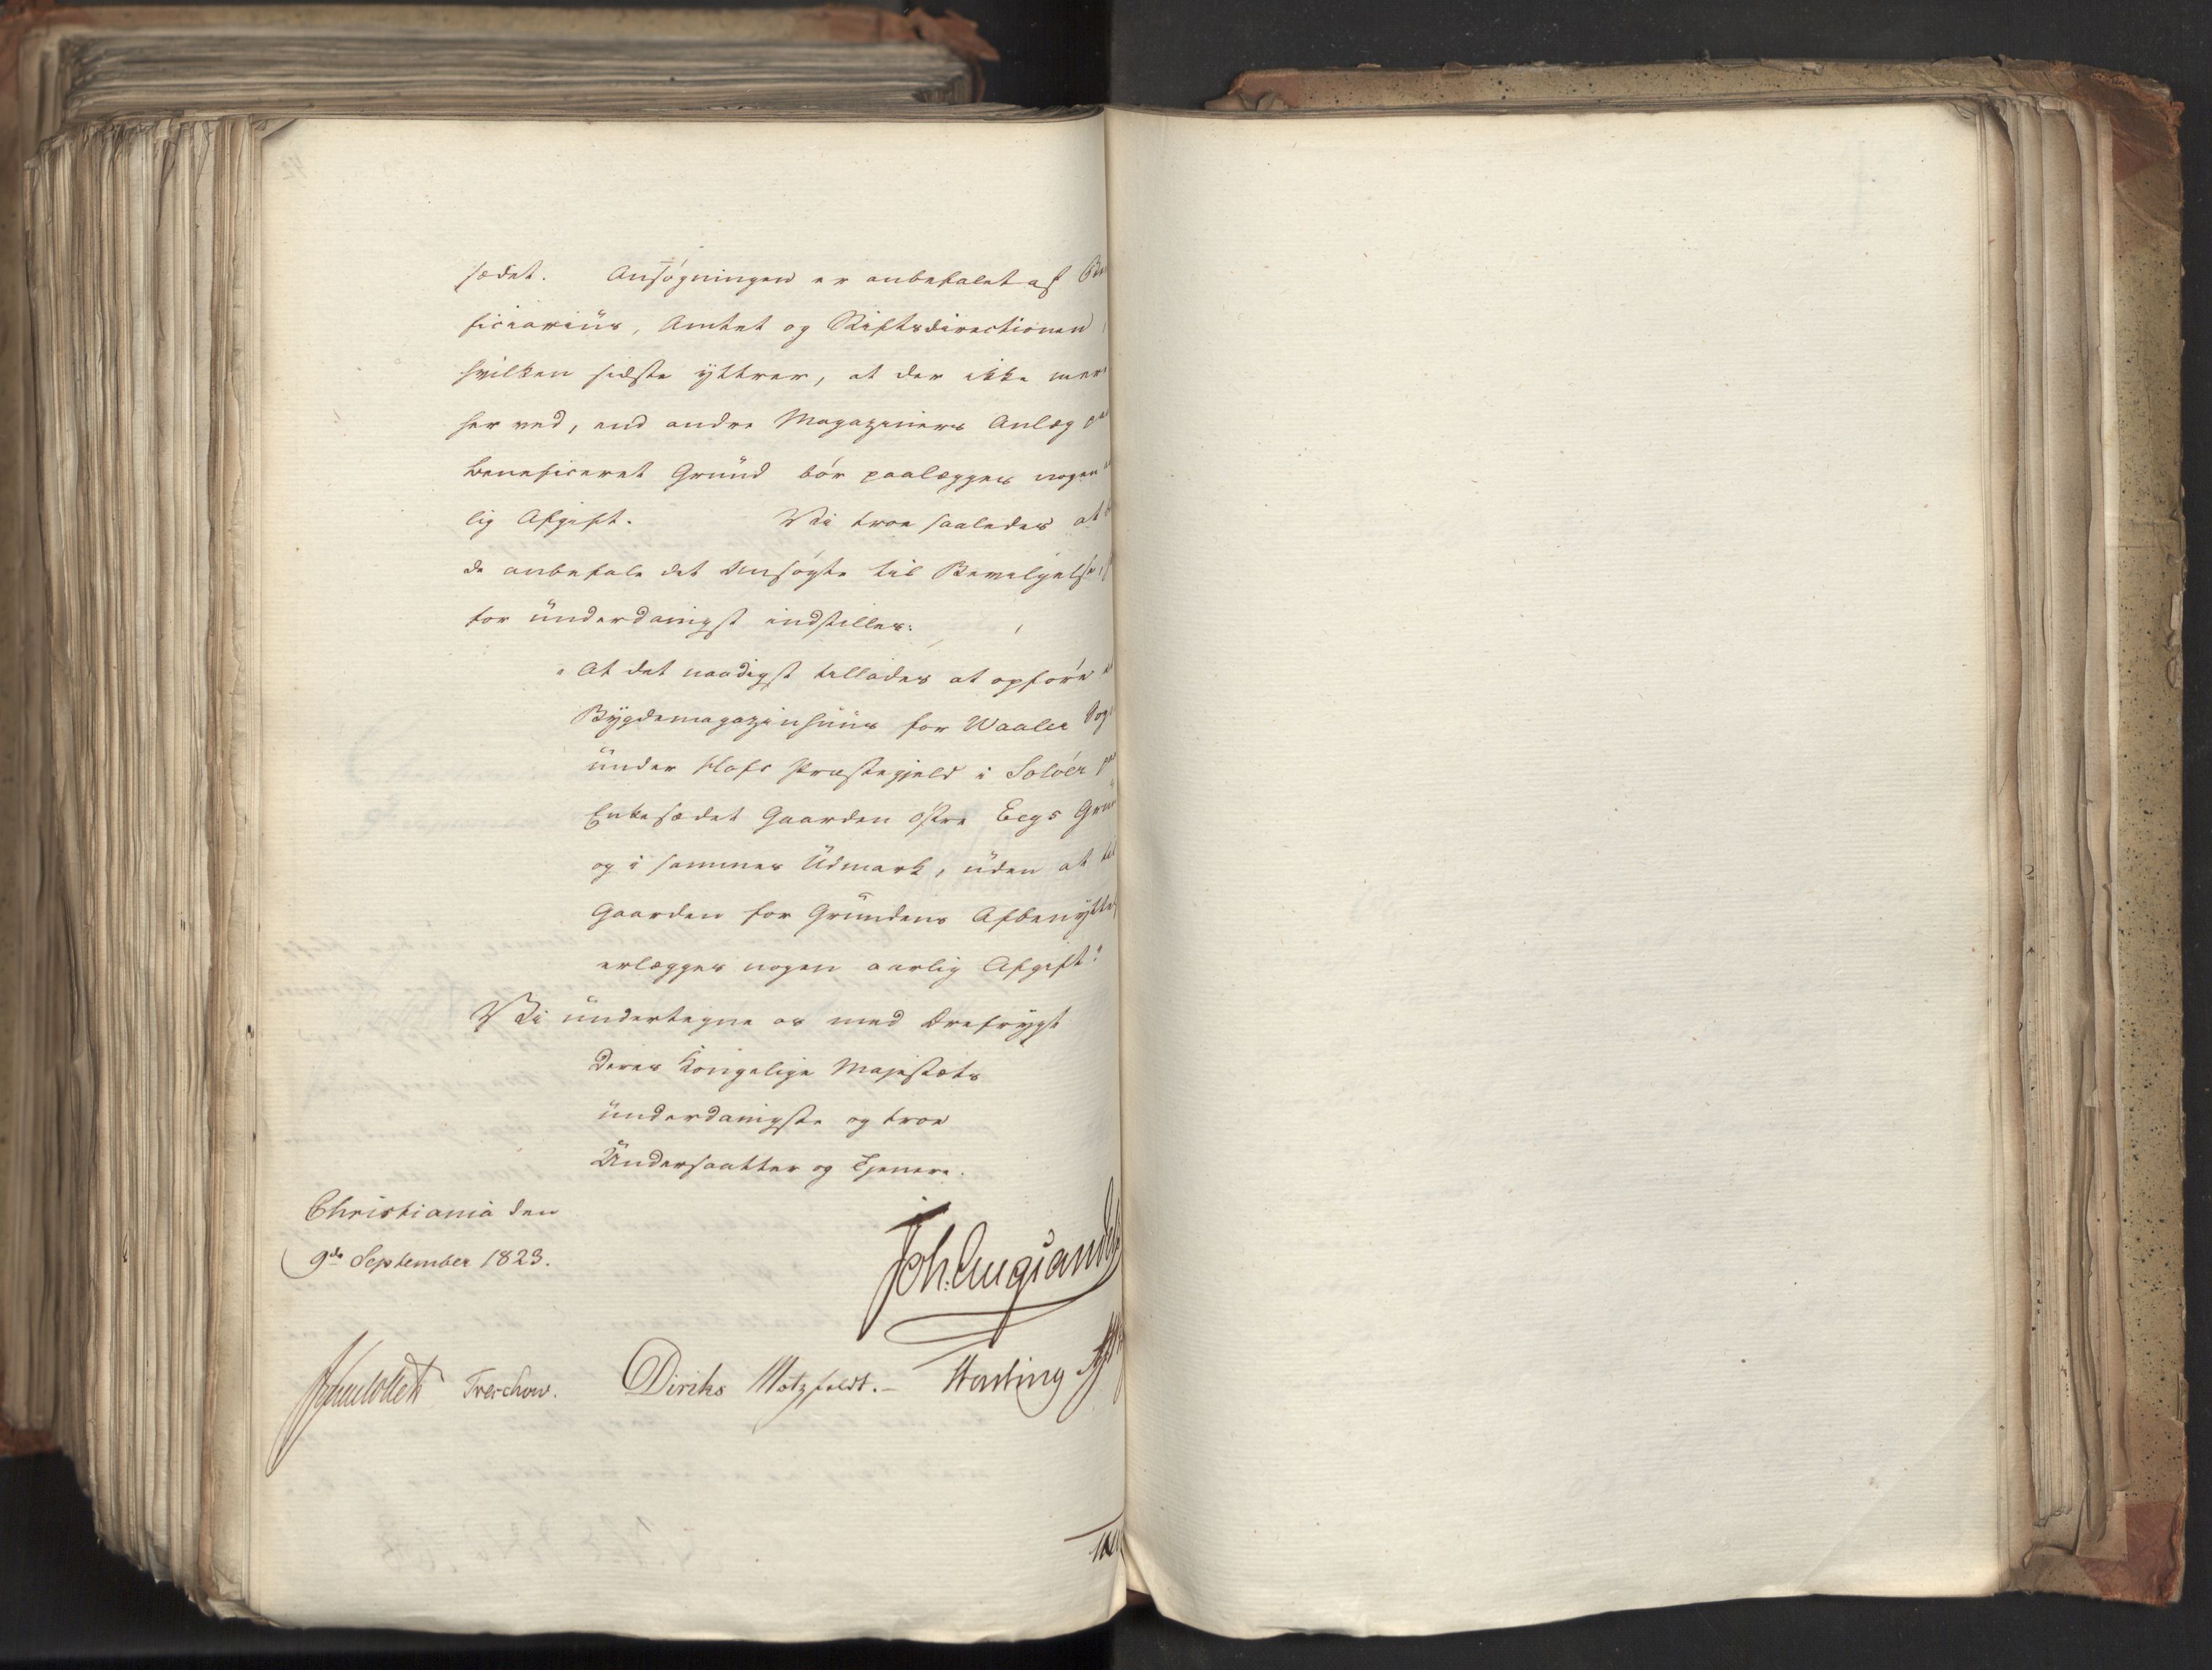 sædet. Ansøgningen er anbefalet af Be
ficiarius, Amtet og Stiftsdirectionen
hvilken sidste yttrer, at der ikke mer
her ved, end andre Magaziners Anlæg pa
beneficeret Grund bør paalægges nogen
lig Afgift. Vi troe saaledes at
de anbefale det Ansøgte til Bevilgelse,
for underdanigst indstilles:
"At det naadigst tillades at opføre
Bygdemagazinhuus for Waaler Sog
under Hofs Præstegjeld i Soløer paa
Enkesædet Gaarden østre Eegs Gru
og i sammes Udmark, uden at til
Gaarden for Grundens Afbenytte
erlægges nogen aarlig Afgift."
Vi undertegne os med Ærefrygt
Deres Kongelige Majestæts
underdanigste og troe
Undersaatter og Tjenere.
Christiania den
9de September 1823.
Joh. Aug: Sandels
JCollett Treschow. Diriks Motzfeldt. Fasting